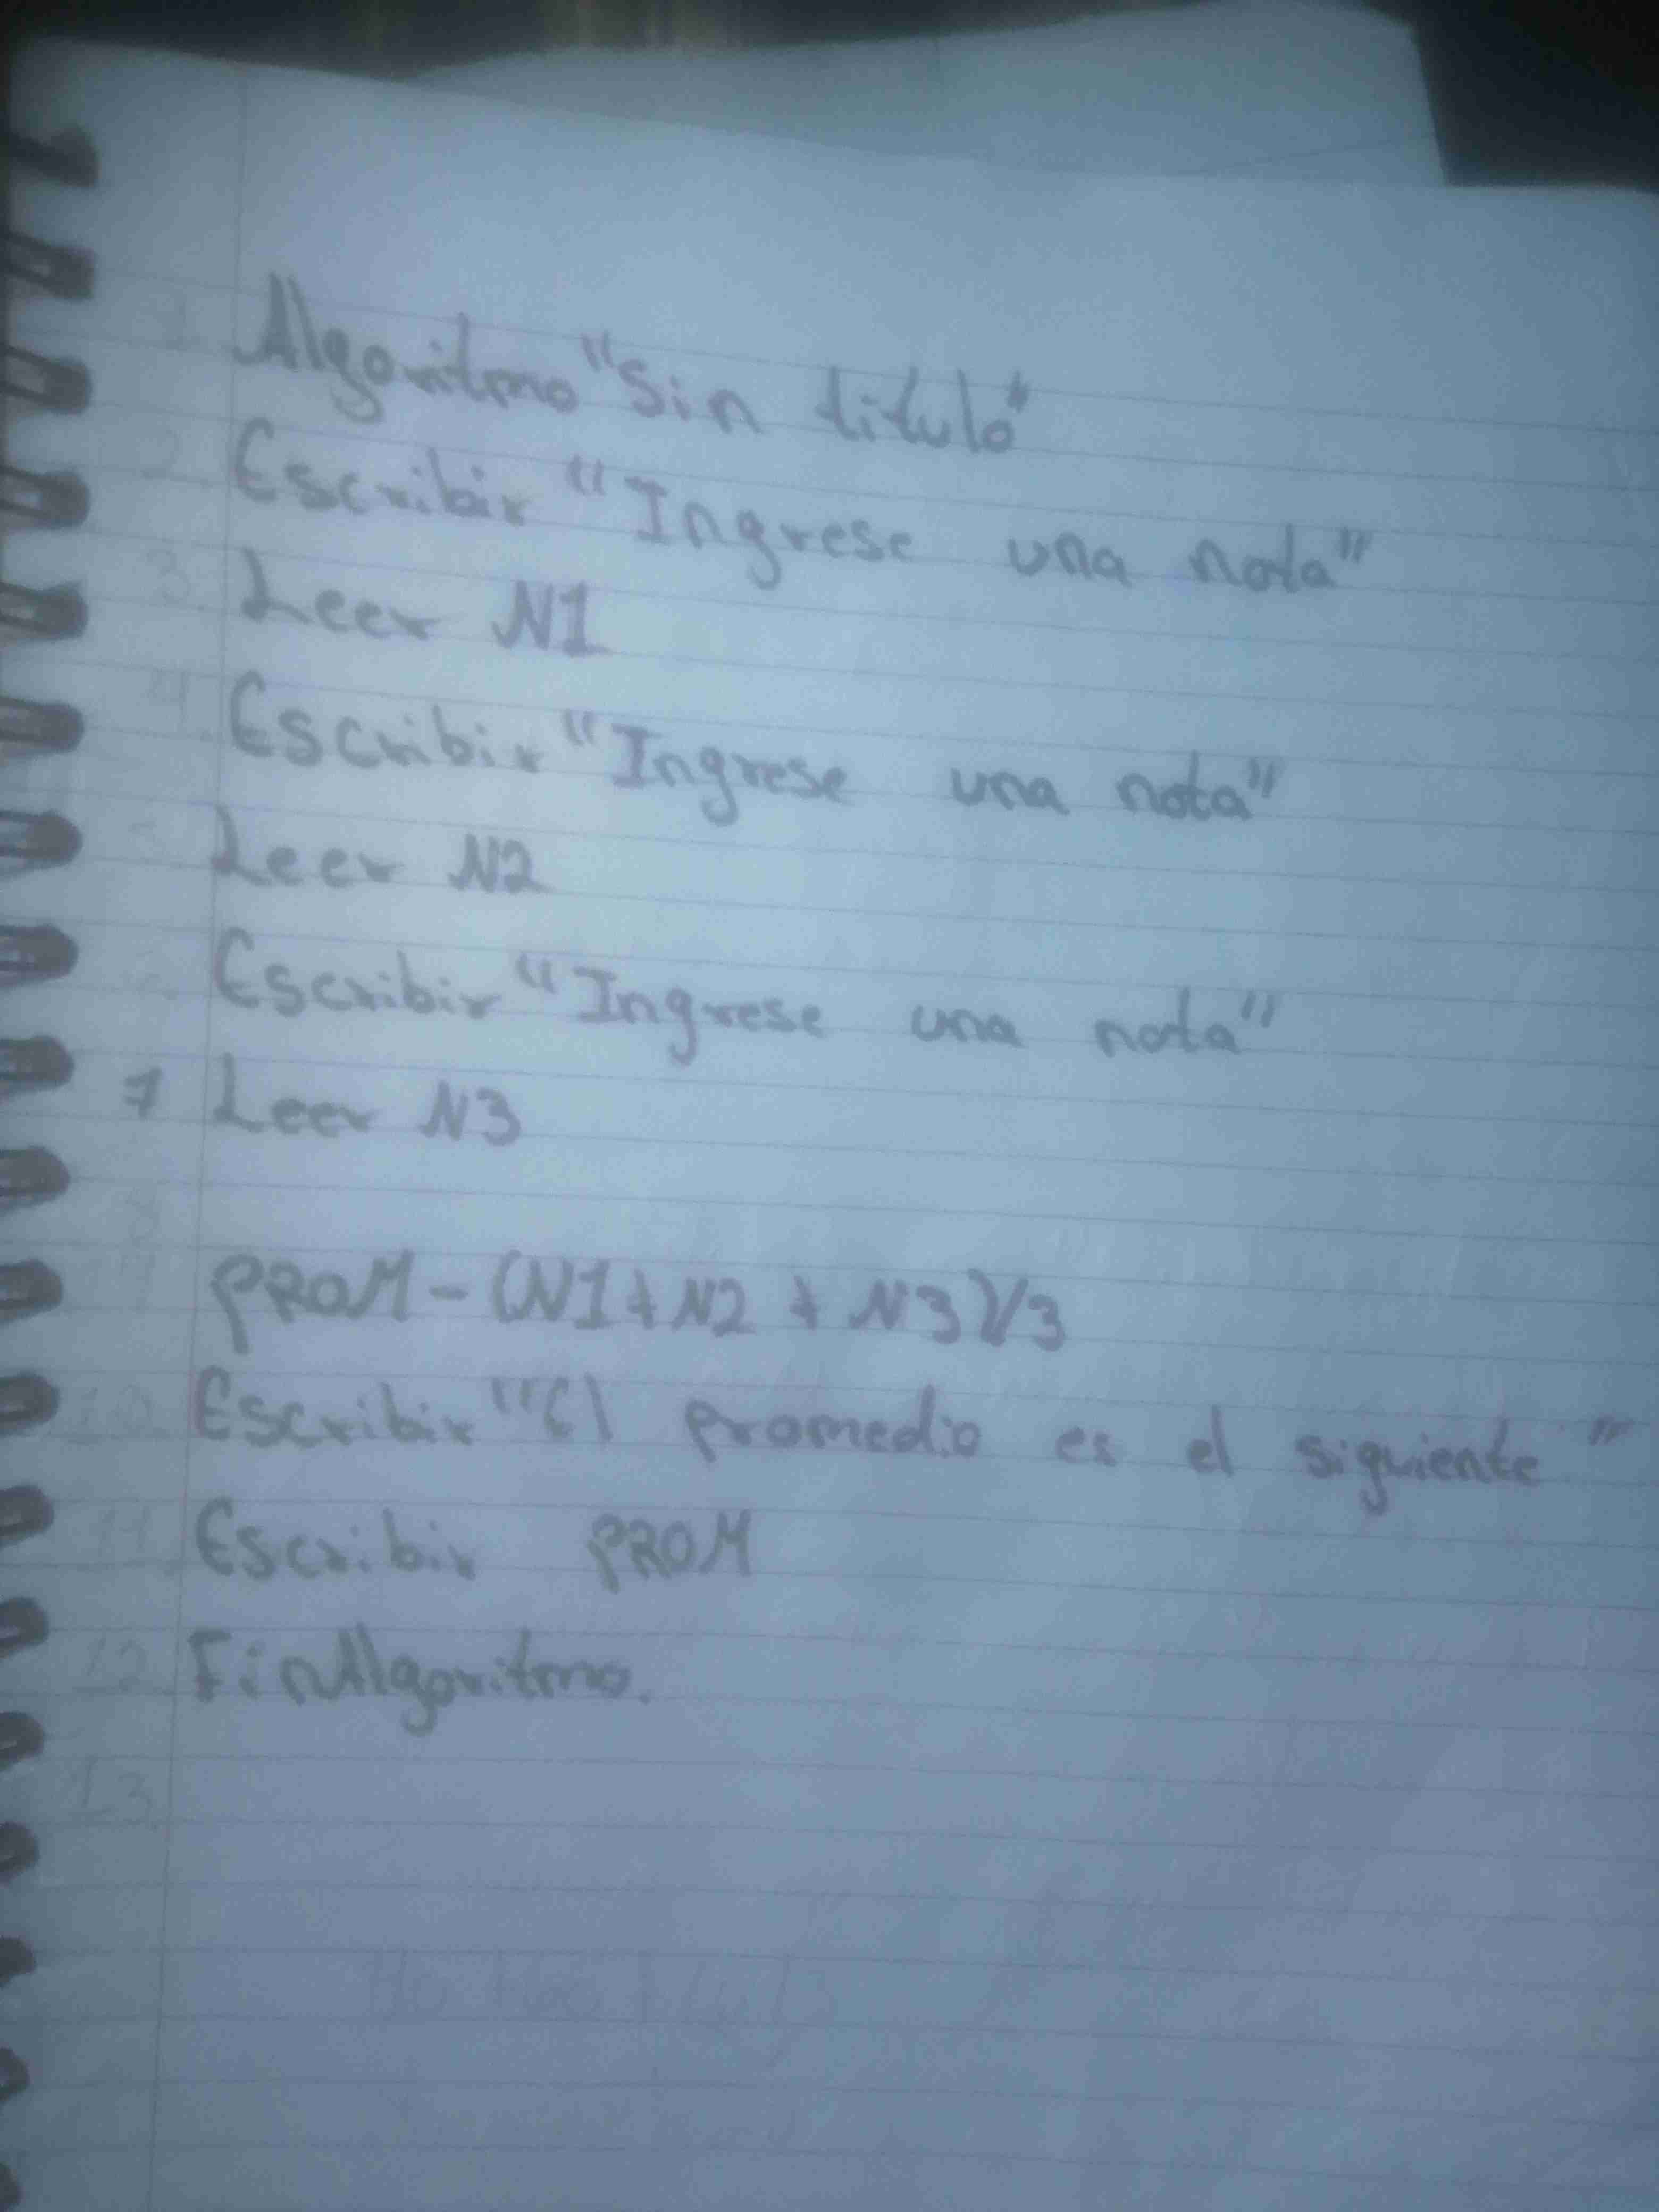 1 Algoritmo "Sin titulo"
2. Escribir "Ingrese una nota"
3. Leer N1
4 Escribir "Ingrese una nota"
Leer N2
Escribir "Ingrese una nota"
7 Leer N3
8
PROM - (N1 + N2 + N3)/3
10. Escribir "El promedio es el siguiente"
11 Escribir PROM
12. FinAlgoritmo.
13.